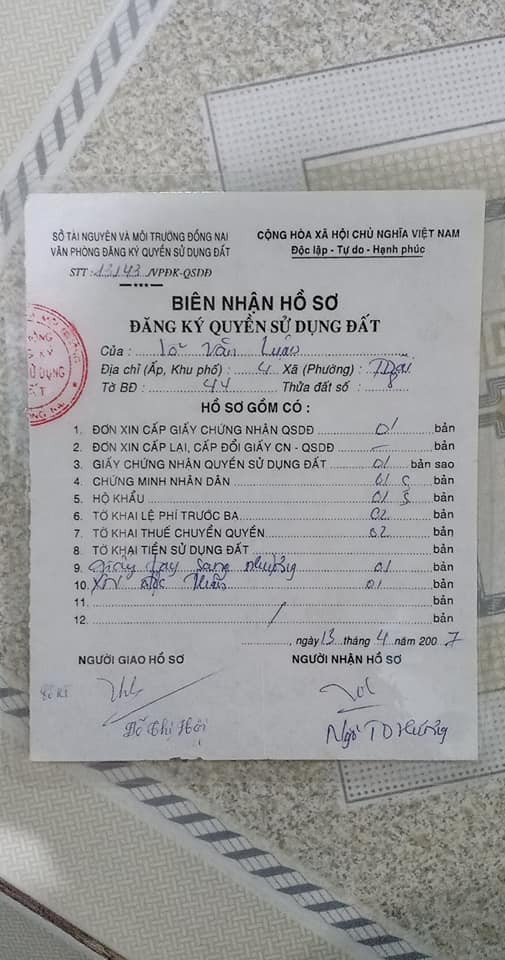 SỞ TÀI NGUYÊN VÀ MÔI TRƯỜNG ĐỒNG NAI
VĂN PHÒNG ĐĂNG KÝ QUYỀN SỬ DỤNG ĐẤT
STT : 13143 /VPĐK-QSDĐ
CỘNG HÒA XÃ HỘI CHỦ NGHĨA VIỆT NAM
Độc lập - Tự do - Hạnh phúc
BIÊN NHẬN HỒ SƠ
ĐĂNG KÝ QUYỀN SỬ DỤNG ĐẤT
Của : Văn Luân
Địa chỉ (Ấp, Khu phố) : 4 Xã (Phường) :
Tờ BĐ : 44 Thửa đất số :
HỒ SƠ GỒM CÓ :
1. ĐƠN XIN CẤP GIẤY CHỨNG NHẬN QSDĐ 01 bản
2. ĐƠN XIN CẤP LẠI, CẤP ĐỔI GIẤY CN - QSDĐ – bản
3. GIẤY CHỨNG NHẬN QUYỀN SỬ DỤNG ĐẤT 01 bản sao
4. CHỨNG MINH NHÂN DÂN 01 S bản
5. HỘ KHẨU 01 S bản
6. TỜ KHAI LỆ PHÍ TRƯỚC BẠ 02 bản
7. TỜ KHAI THUẾ CHUYỂN QUYỀN 02 bản
8. TỜ KHAI TIỀN SỬ DỤNG ĐẤT bản
9. Giấy tay sang nhượng 01 bản
10. XN 01 bản
11. bản
12. / bản
, ngày 13 tháng 4 năm 2007
NGƯỜI GIAO HỒ SƠ
NGƯỜI NHẬN HỒ SƠ
Đỗ Thị Hội
Ngô TD Hương